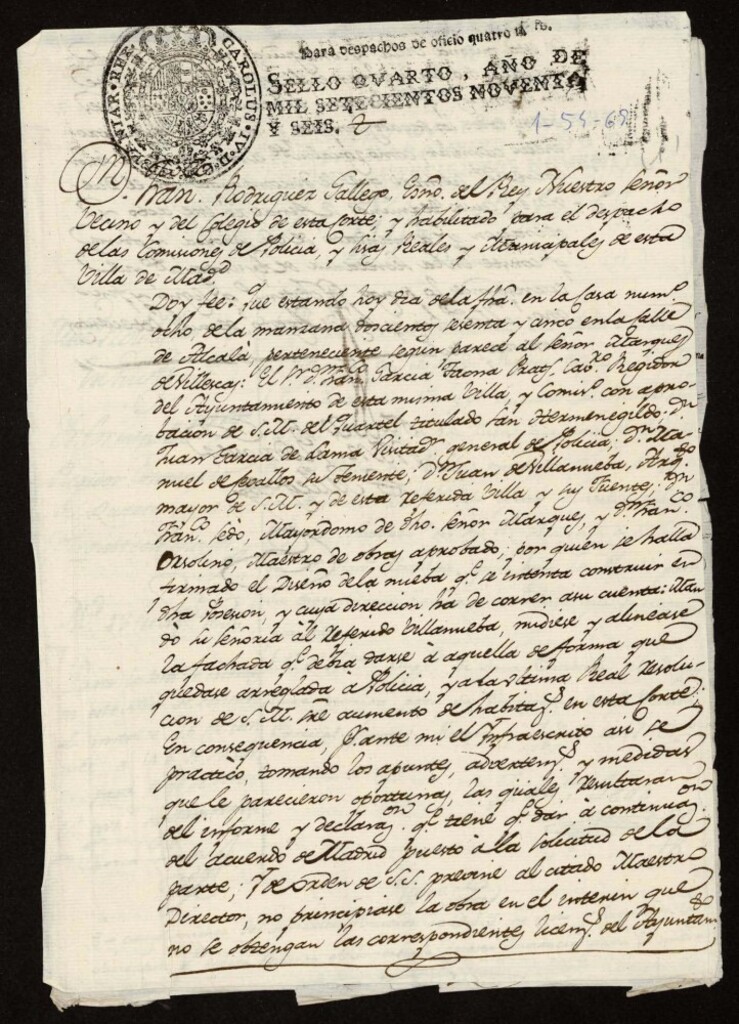 CAROLUS IV D. G. HISPANIAR REX
Para despachos de oficio quatro mrs.
SELLO QVARTO, AÑO DE
MIL SETECIENTOS NOVENTA
Y SEIS.
1-54-69
Fran. Rodriguez Gallego, Esno. del Rey Nuestro Señor
Vecino y del Colegio de esta Corte; y habilitado para el despacho
de las Comisiones de Policia, y Reales y Municipales de esta
Villa de Madd
Doy fee: Que estando hoy dia de la fha. en la Casa numo.
ocho de la manzana doscientos sesenta y cinco en la Calle
de Alcalà, perteneciente segun parece al señor Marques
de Villescas: El Sr. Dn. Franco. Garcia Tacona Cabro. Regidor
del Ayuntamiento de esta misma Villa, y Comiso. con apro-
bacion de S.M. del Quartel titulado San Hermenegildo: Dn.
Juan Garcia de Lama Visitador general de Policia, Dn. Ma-
nuel de Zevallos su teniente; Dn. Juan de Villanueba, Arqto.
mayor de S.M. y de esta referida Villa y sus Fuentes; Dn.
Franco. Sedò, Mayordomo de dho. señor Marques, y Dn. Franco.
Orsolino, Maestro de obras aprobado; por quien se halla
firmado el Diseño de la nueba qe. se intenta construir en
dha posesion, y cuya direccion ha de correr a su cuenta: Man
dò su señoria al referido Villanueba, midiese y alinease
la fachada qe. debia darse à aquella de forma que
quedase arreglada à Policia, y a la vltima Real resolu-
cion de S.M. sre. aumento de habitazs. en esta Corte;
En consequencia, Y ante mi el Ynfraescrito asi se
practicò, tomando los apuntes, advertens. y medidas
que le parecieron oportunas, las quales resultaran
del informe y declaraon. qe. tiene qe. dar à continuaon.
del acuerdo de Madrid puesto à la solicitud de la
parte; Y de orden de S.S. previne al citado Maestro
Director, no principiase la obra en el interin que
no se obtengan las correspondientes licens. del Ayuntamto.